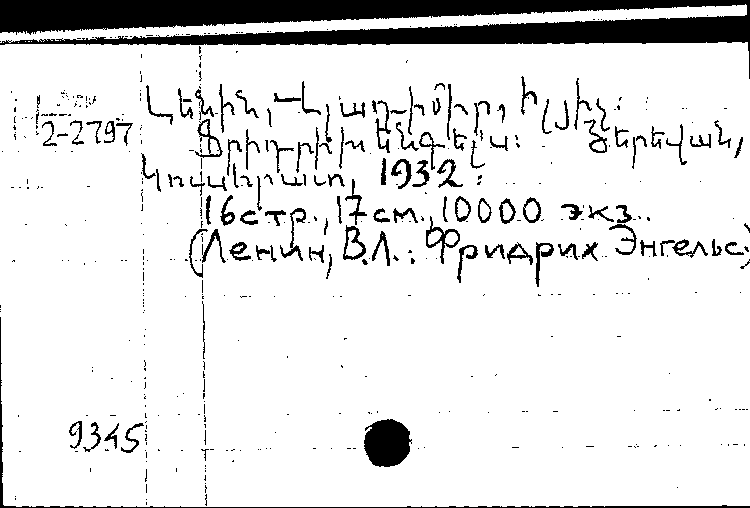 Լենին, Վլադիմիր, Իլյիչ:
2-2797 Ֆրիդրիխ Ենգելս: Յերեվան,
Կուսհրատ, 1932:
16 стр., 17 см., 10000 экз.
(Ленин, В.Л.: Фридрих Энгельс)
9345